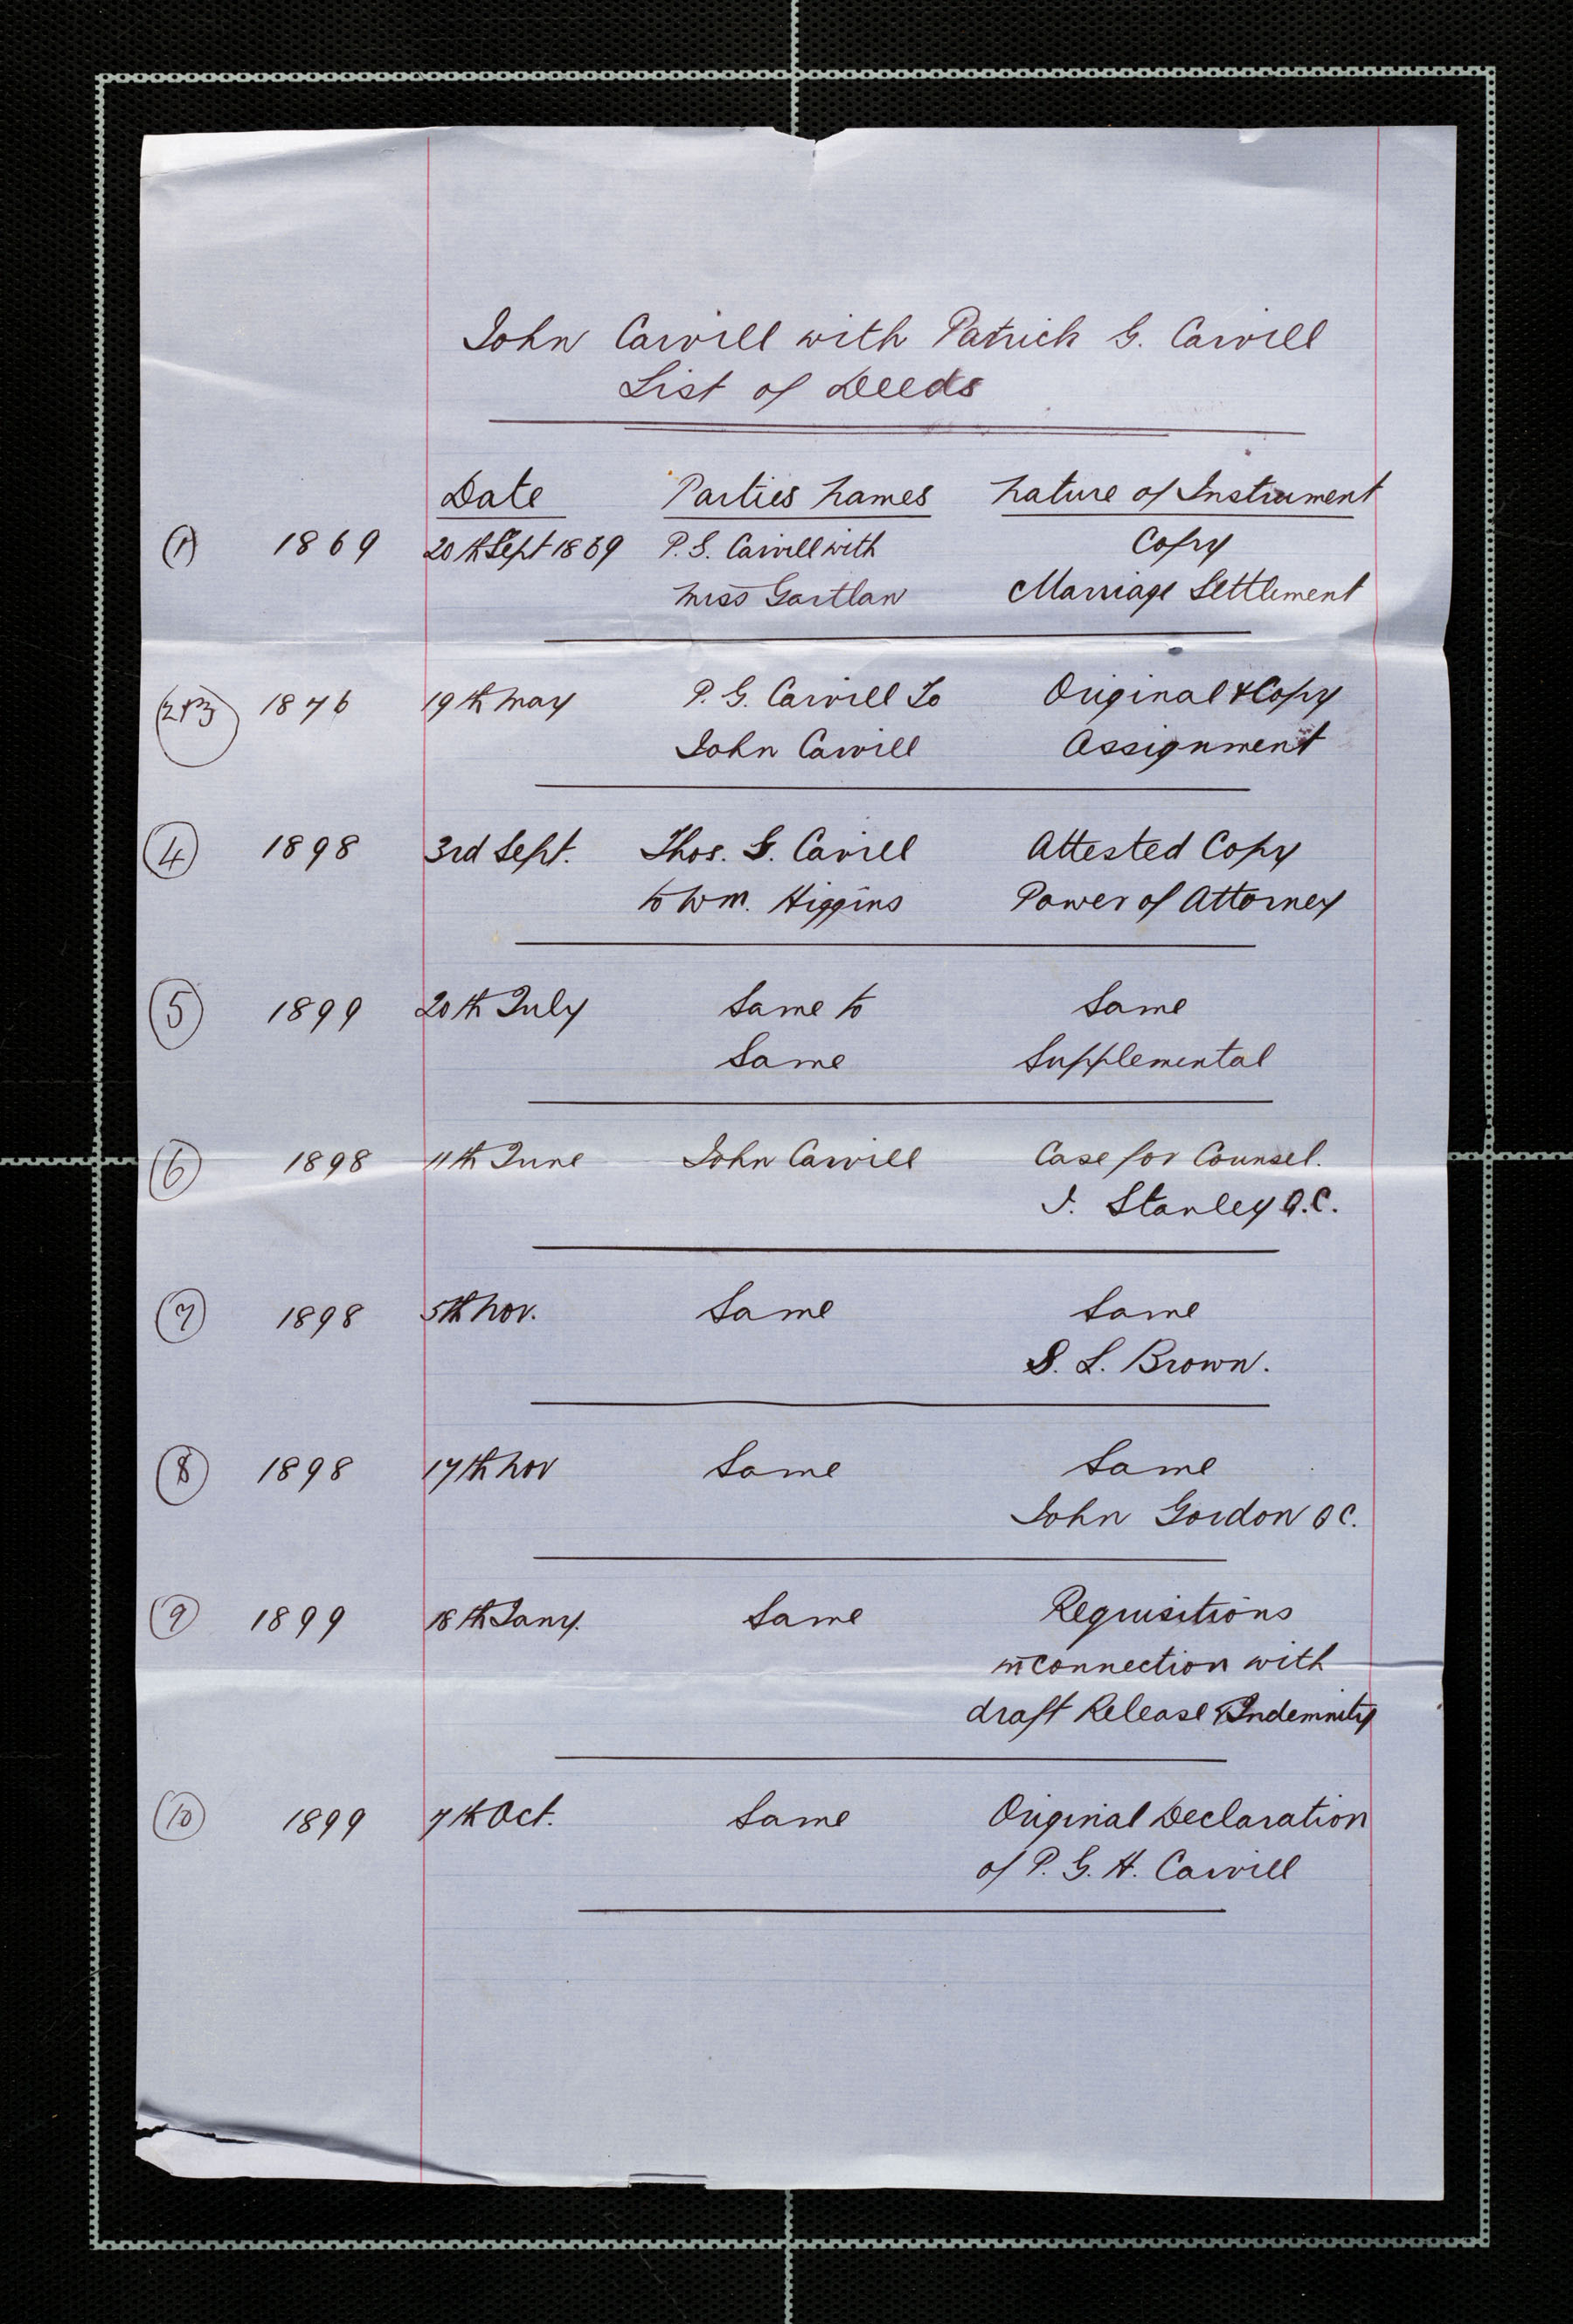 John Carvill with Patrick G. Carvill
List of Deeds
Date Parties Names Nature of Instrument
(1) 1869 20th Sept 1869 P. G. Carvill with Copy
Miss Gartlan Marriage Settlement
(2 & 3) 1876 19th May P. G. Carvill To Original & Copy
John Carvill Assignment
(4) 1898 3rd Sept. Thos. G. Carvill Attested Copy
to Wm. Higgins Power of Attorney
(5) 1899 20th July Same to Same
Same Supplemental
(6) 1898 11th June John Carvill Case for Counsel.
J. Stanley Q.C.
(7) 1898 5th Nov. Same Same
S. L. Brown.
(8) 1898 17th Nov Same Same
John Gordon QC.
(9) 1899 18th Jany. Same Requisitions
in connection with
draft Release & Indemnity
(10) 1899 7th Oct. Same Original Declaration
of P. G. H. Carvill